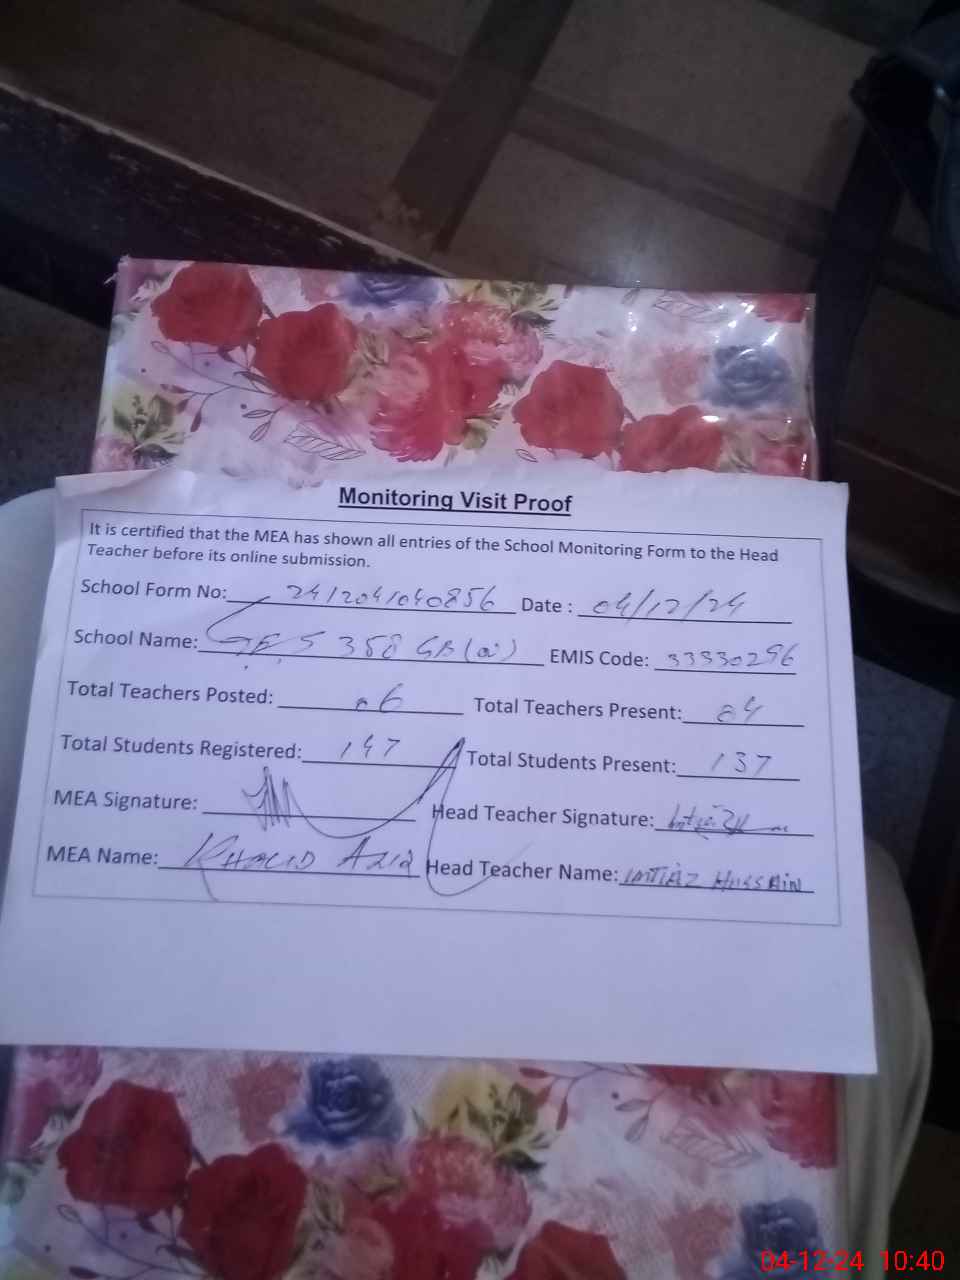 Monitoring Visit Proof
It is certified that the MEA has shown all entries of the School Monitoring Form to the Head
Teacher before its online submission.
School Form No: 2412041040856 Date : 04/12/24
School Name: GES 358 GB (w) EMIS Code: 33330296
Total Teachers Posted: 06 Total Teachers Present: 04
Total Students Registered: 147 Total Students Present: 137
MEA Signature: Head Teacher Signature:
MEA Name: KHALID AZIZ Head Teacher Name: IMTIAZ HUSSAIN
04-12-24 10:40